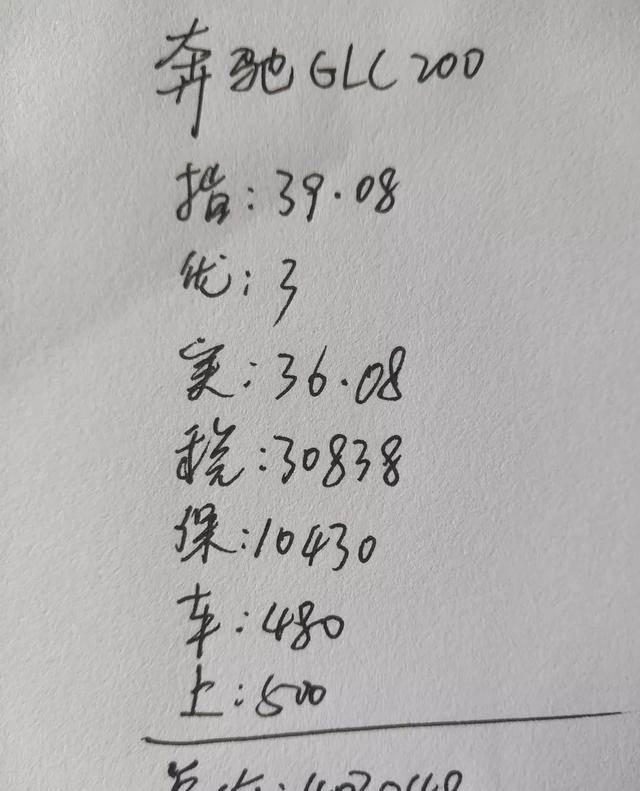 奔驰GLC200
指:39.08
优:3
实:36.08
税:30838
保:10430
车:480
上:500